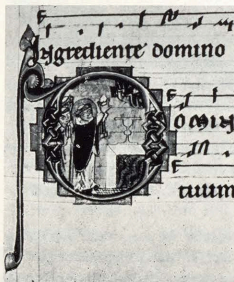 Ingrediente domino
omin
tuum